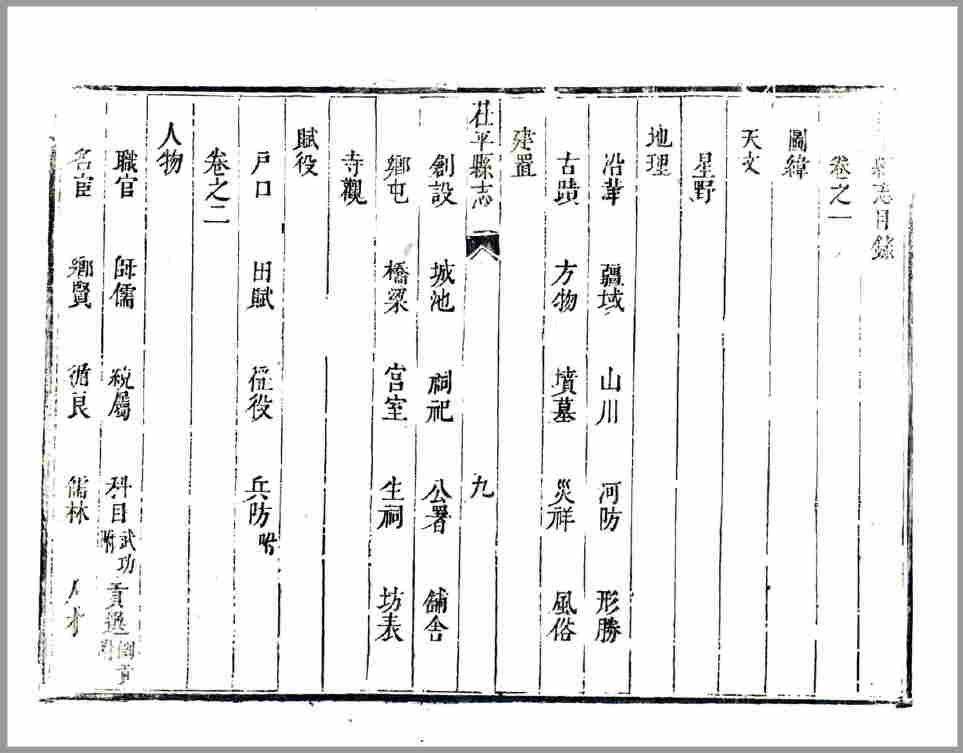 縣志目錄
卷之一
圖緯
天文
星野
地理
沿革 疆域 山川 河防 形勝
古蹟 方物 墳墓 災祥 風俗
建置
茌平縣志 九
創設 城池 祠祀 公署 舖舍
鄉屯 橋梁 宫室 生祠 坊表
寺觀
賦役
戸口 田賦 徭役 兵防附
卷之二
人物
職官 師儒 統屬 科目武功附 貢選
名宦 鄉賢 循良 儒林 人才